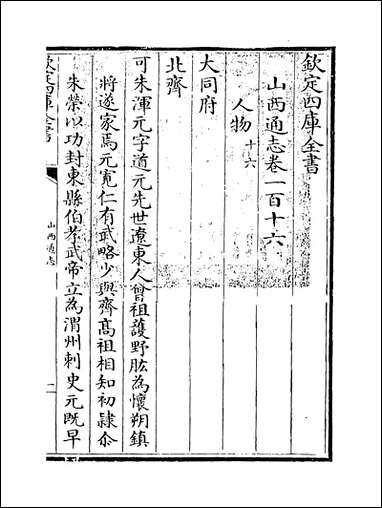 欽定四庫全書
山西通志卷一百十六
人物十六
大同府
北齊
可朱渾元字道元先世遼東人曾祖護野肱為懷朔鎮
將遂家焉元寛仁有武略少與齊髙祖相知初隸尒
朱榮以功封東縣伯孝武帝立為渭州刺史元既早
欽定四庫全書
山西通志